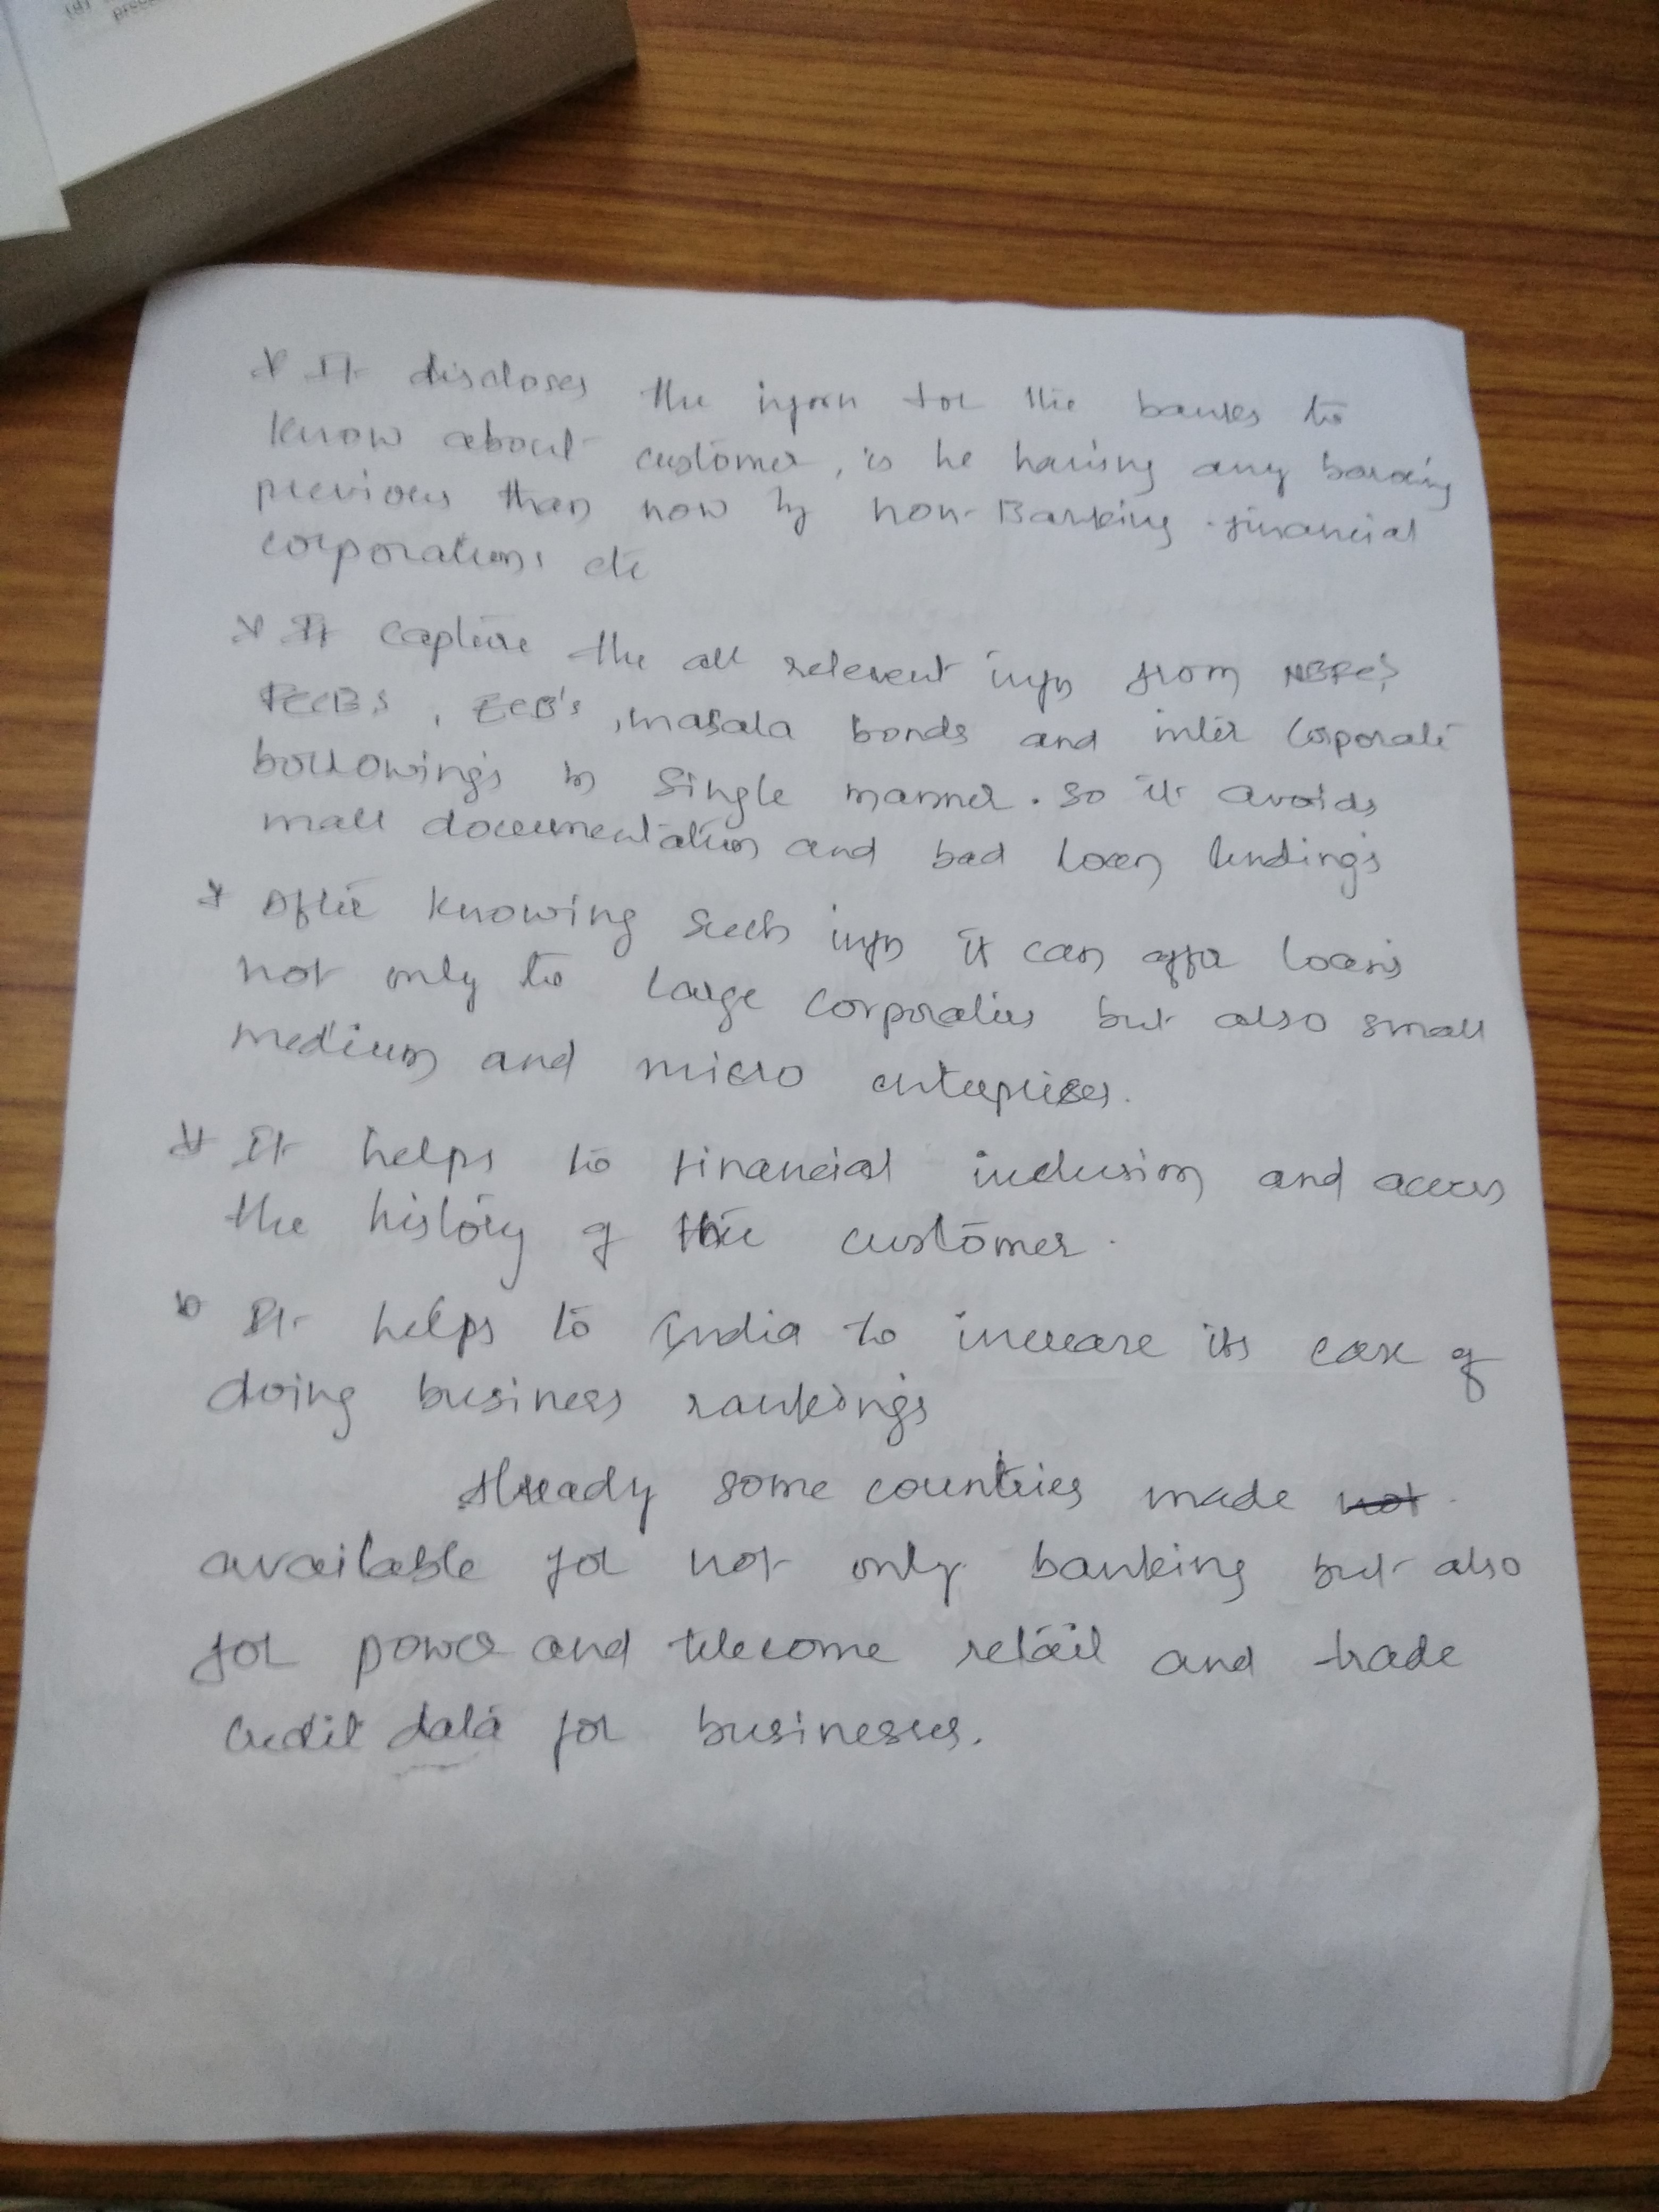 * It discloses the inforn for the banks to
know about customer, is he having any
previous than now by non-Banking financial
corporations etc
* It capture the all relevent infn from NBFC's
FCCBs, ECB's, masala bonds and inter corporate
borrowings in single manner. so it avoids
mall documentation and bad loan lendings
* After knowing such infn it can offer loans
not only to large corporaties but also small
medium and micro enterprises.
* It helps to financial inclusion and access
the history of the customer.
* It helps to India to increase its ease of
doing business rankings
Already some countries made not
available for not only banking but also
for power and telecome retail and trade
credit data for businesses.